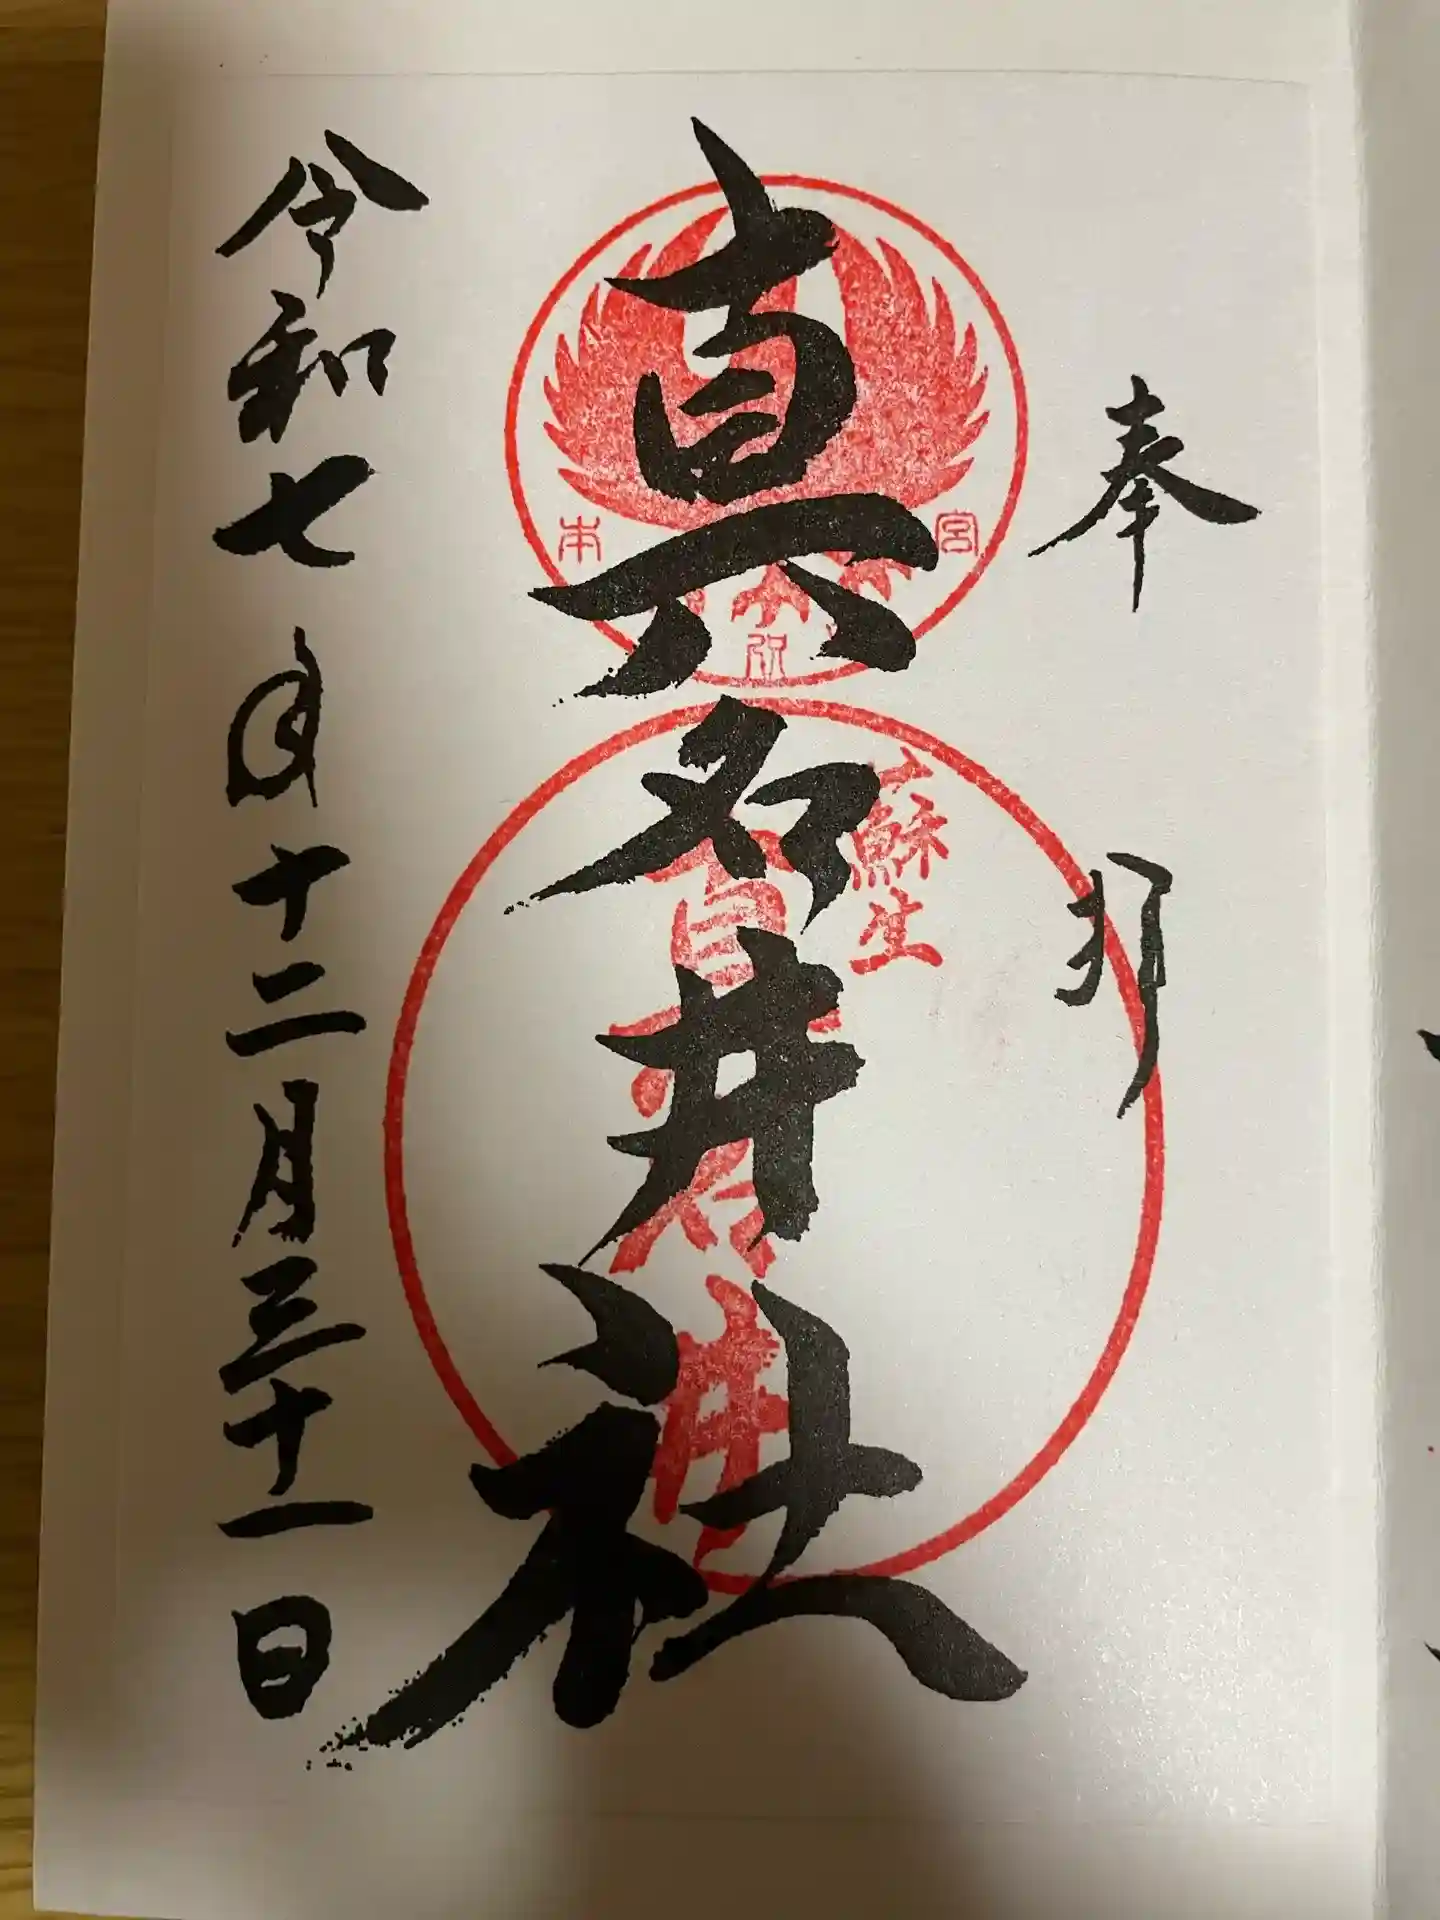 奉拝
真名井社
令和七年十二月三十一日
本宮
蘇生
真名井